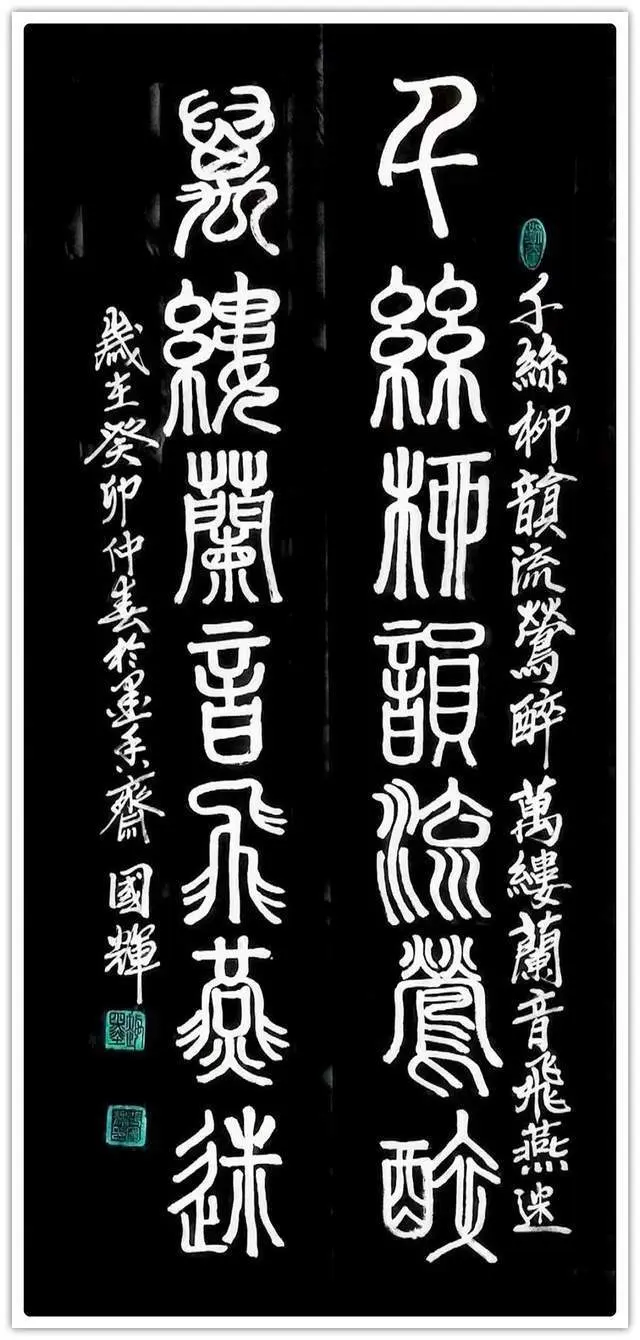 千絲柳韻流鶯醉萬縷蘭音飛燕迷
千絲柳韻流鶯醉
萬縷蘭音飛燕迷
歲在癸卯仲春於墨香齋 國輝